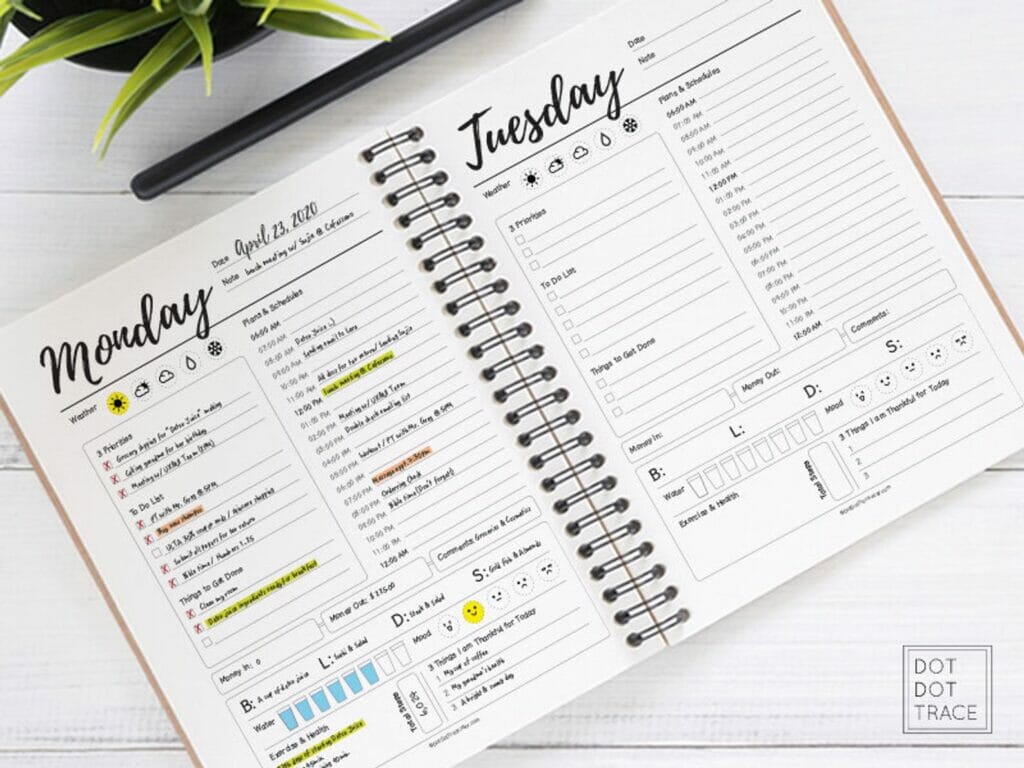 Monday
Date April 23, 2020
Note lunch meeting w/ Susie @ Cafesismo
Weather
3 Priorities
X Grocery shopping for "Detox Juice" making
X Calling grandma for her birthday
X Meeting w/ UX&UI Team (2PM)
To Do List
X PT with Mr. Greg @ 5PM
X Buy new shampoo
X Submit all report for tax return
X Bible time / Numbers 1-25
Things to Get Done
X Clean my room
X Detox juice ingredients ready for breakfast
Plans & Schedules
06:00 AM
07:00 AM Detox Juice :)
08:00 AM Sending email to
09:00 AM
10:00 AM
11:00 AM
12:00 PM Lunch meeting @ Cafesismo
01:00 PM
02:00 PM Meeting w/ UX&UI Team
03:00 PM Double check mailing list
04:00 PM
05:00 PM workout / PT with Mr. Greg @ 5PM
06:00 PM
07:00 PM
08:00 PM Ordering Check
09:00 PM Bible time (Don't forget)
10:00 PM
11:00 PM
12:00 AM
Money In: 0
Money Out: $
Comments: Groceries & Cosmetics
B: A cup of detox juice
L: Sushi & Salad
D: Steak & Salad
S: Gold fish & Almonds
Water
Mood
Exercise & Health
Total Sleep
3 Things I am Thankful for Today
1 My cup of coffee
2 My grandma's health
3 A bright & sunny day
Tuesday
Date
Note
Weather
3 Priorities
To Do List
Things to Get Done
Plans & Schedules
06:00 AM
07:00 AM
08:00 AM
09:00 AM
10:00 AM
11:00 AM
12:00 PM
01:00 PM
02:00 PM
03:00 PM
04:00 PM
05:00 PM
06:00 PM
07:00 PM
08:00 PM
09:00 PM
10:00 PM
11:00 PM
12:00 AM
Money In:
Money Out:
Comments:
B:
L:
D:
S:
Water
Mood
Exercise & Health
Total Sleep
3 Things I am Thankful for Today
1
2
3
DOT
DOT
TRACE